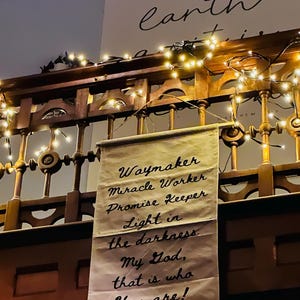 earth
Waymaker
Miracle Worker
Promise Keeper
Light in
the darkness
My God,
that is who
You are!